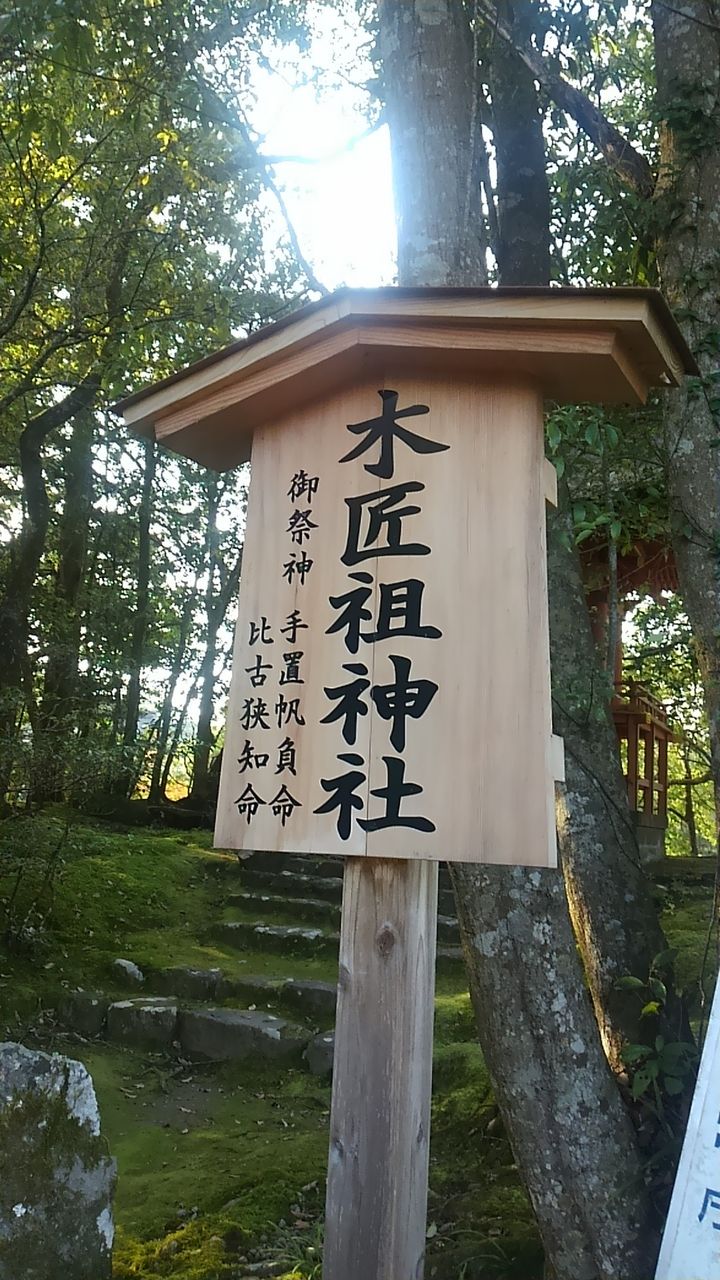 木匠祖神社
御祭神
手置帆負命
比古狭知命